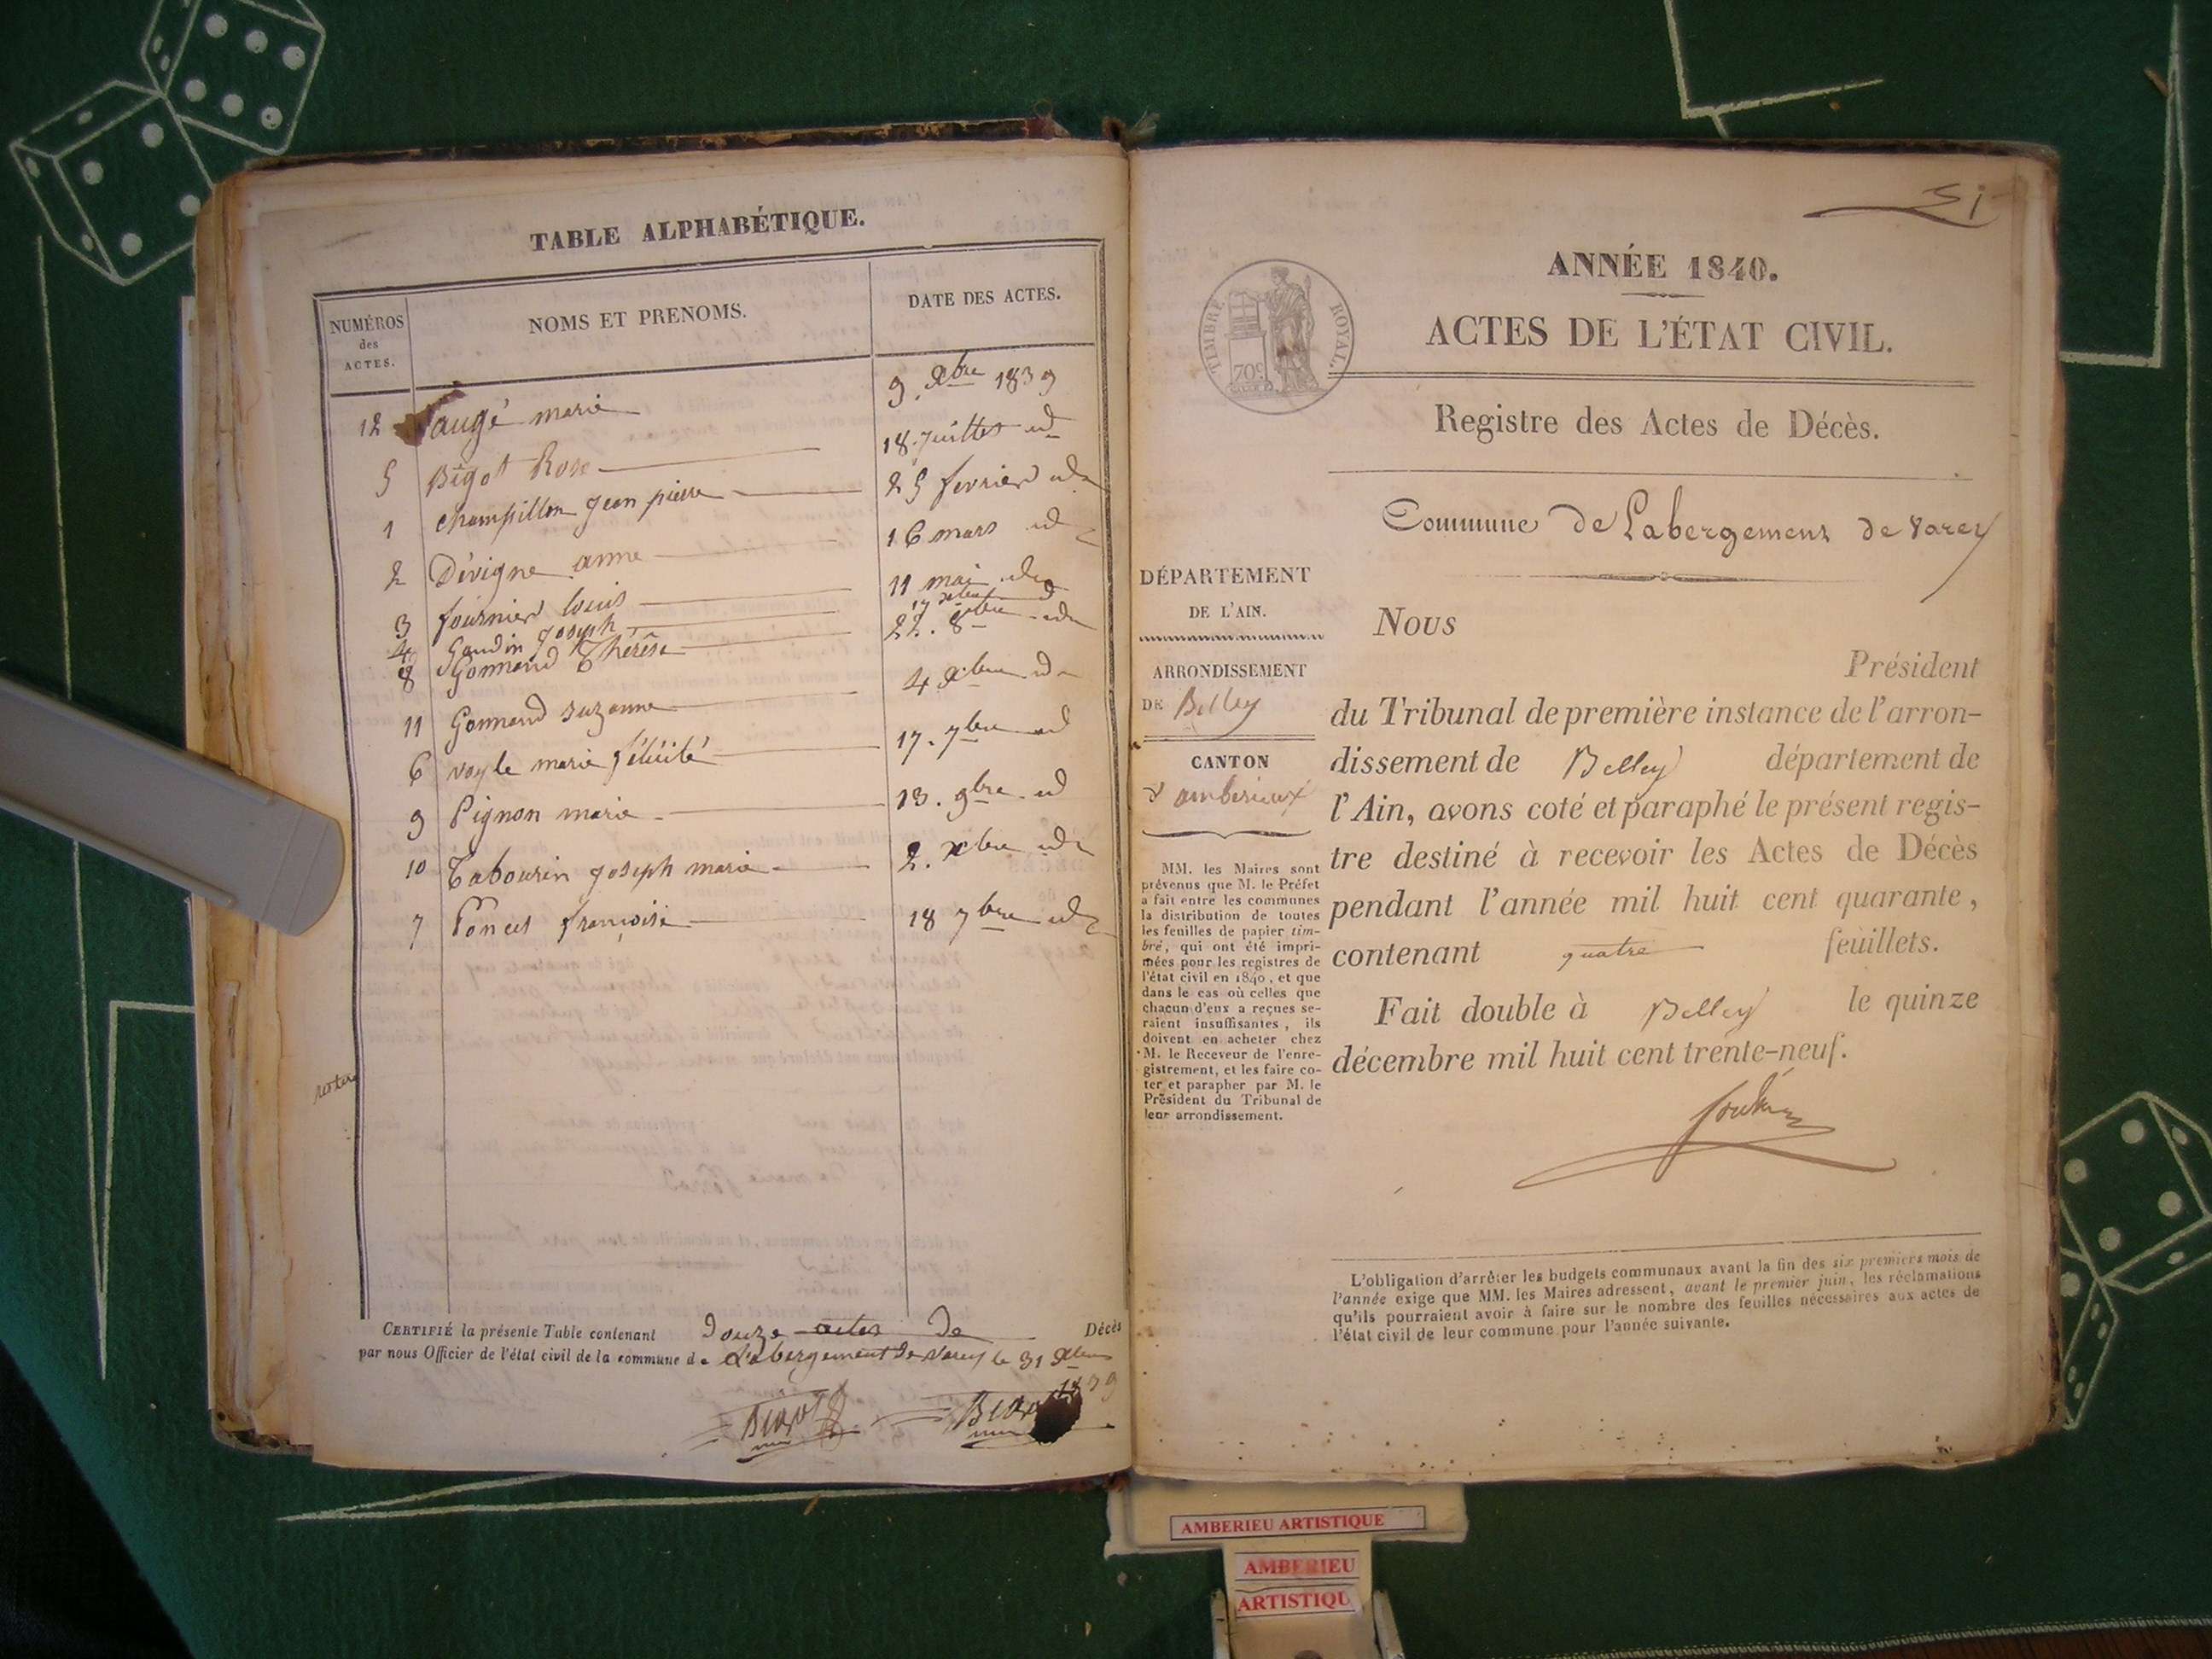 TABLE ALPHABÉTIQUE.
NUMÉROS
des
ACTES.
NOMS ET PRENOMS.
DATE DES ACTES.
12 augé marie 9. Xbre 1839
5 Bigot Rose 18. Juillet id
1 Champillon Jean pierre 25 fevrier id
2 Dévigne anne 16 mars id
3 fournier louis 11 mai id
4 Gaudin Joseph 17
8 Gonnand Thérèse 27. 8bre id
11 Gonnand Suzanne 4 Xbre id
6 noyle marie félicité 17. 7bre id
9 Pignon marie 13. 9bre id
10 Tabourin Joseph marie 2. Xbre id
7 Poncet françoise 18 7bre id
CERTIFIÉ la présente Table contenant douze actes de Décès
par nous Officier de l'état civil de la commune de L'abergement de Varey le 31 Xbre
1839
51
TIMBRE ROYAL.
70c
ANNÉE 1840.
ACTES DE L'ÉTAT CIVIL.
Registre des Actes de Décès.
Commune de Labergement de Varey
DÉPARTEMENT
DE L'AIN.
ARRONDISSEMENT
DE Belley
CANTON
d'ambérieux
MM. les Maires sont
prévenus que M. le Préfet
a fait entre les communes
la distribution de toutes
les feuilles de papier tim-
bré, qui ont été impri-
mées pour les registres de
l'état civil en 1840, et que
dans le cas où celles que
chacun d'eux a reçues se-
raient insuffisantes, ils
doivent en acheter chez
M. le Receveur de l'enre-
gistrement, et les faire co-
ter et parapher par M. le
Président du Tribunal de
leur arrondissement.
Nous
Président
du Tribunal de première instance de l'arron-
dissement de Belley département de
l'Ain, avons coté et paraphé le présent regis-
tre destiné à recevoir les Actes de Décès
pendant l'année mil huit cent quarante,
contenant quatre feuillets.
Fait double à Belley le quinze
décembre mil huit cent trente-neuf.
L'obligation d'arrêter les budgets communaux avant la fin des six premiers mois de
l'année exige que MM. les Maires adressent, avant le premier juin, les réclamations
qu'ils pourraient avoir à faire sur le nombre des feuilles nécessaires aux actes de
l'état civil de leur commune pour l'année suivante.
AMBERIEU ARTISTIQUE
AMBERIEU
ARTISTIQU